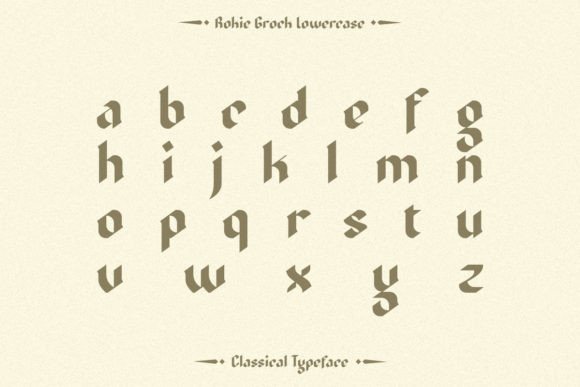 Rohie Groch Lowercase
a b c d e f g
h i j k l m n
o p q r s t u
v w x y z
Classical Typeface